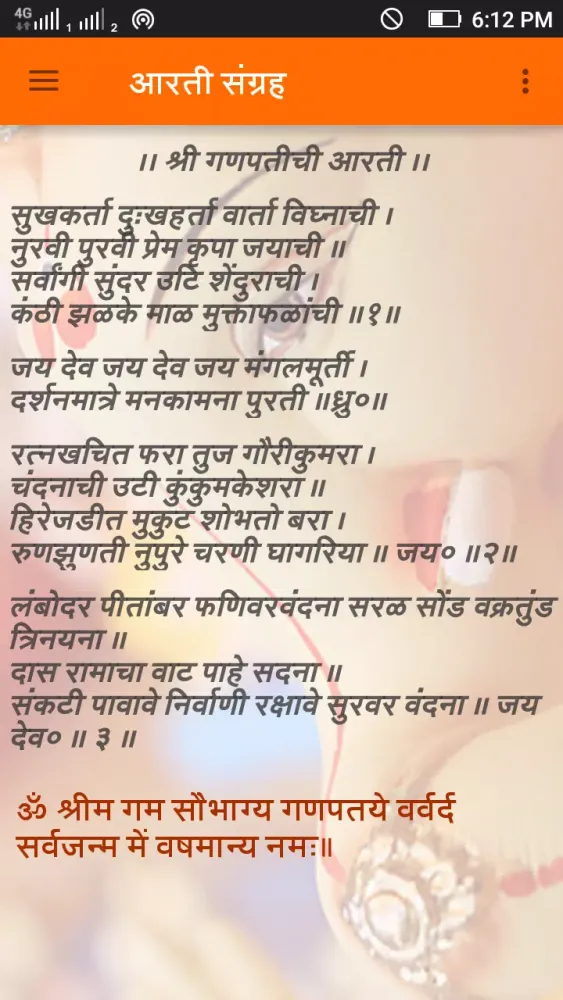 4G 1 2 6:12 PM
आरती संग्रह
।। श्री गणपतीची आरती ।।
सुखकर्ता दुःखहर्ता वार्ता विघ्नाची ।
नुरवी पुरवी प्रेम कृपा जयाची ॥
सर्वांगी सुंदर उटि शेंदुराची ।
कंठी झळके माळ मुक्ताफळांची ॥१॥
जय देव जय देव जय मंगलमूर्ती ।
दर्शनमात्रे मनकामना पुरती ॥ध्रु०॥
रत्नखचित फरा तुज गौरीकुमरा ।
चंदनाची उटी कुंकुमकेशरा ॥
हिरेजडीत मुकुट शोभतो बरा ।
रुणझुणती नुपुरे चरणी घागरिया ॥ जय० ॥२॥
लंबोदर पीतांबर फणिवरवंदना सरळ सोंड वक्रतुंड
त्रिनयना ॥
दास रामाचा वाट पाहे सदना ॥
संकटी पावावे निर्वाणी रक्षावे सुरवर वंदना ॥ जय
देव० ॥ ३ ॥
ॐ श्रीम गम सौभाग्य गणपतये वर्वर्द
सर्वजन्म में वषमान्य नमः॥